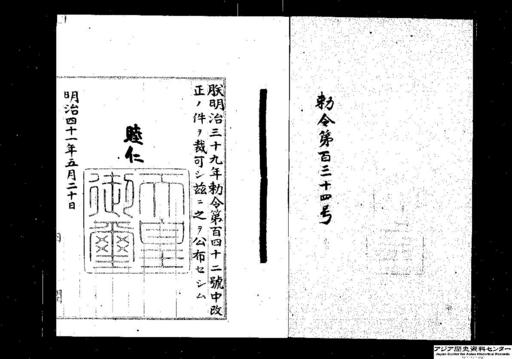 勅令第百三十四号
朕明治三十九年勅令第百四十二號中改
正ノ件ヲ裁可シ茲ニ之ヲ公布セシム
睦仁
天皇
御璽
明治四十一年五月二十日
アジア歴史資料センター
Japan Center for Asian Historical Records